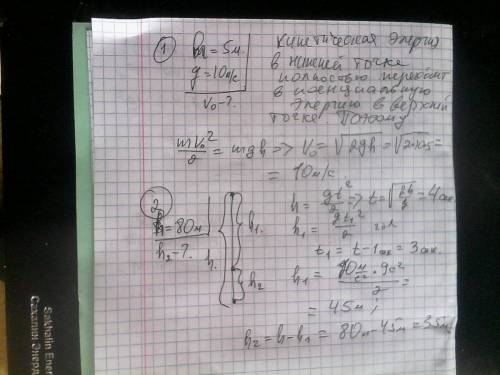 ① h = 5м.
g = 10м/с
V₀ - ?
Кинетическая энергия
в нижней точке
полностью переходит
в потенциальную
энергию в верхней
точке Поэтому
mV₀²/2 = mgh => V₀ = √2gh = √2·10·5 =
= 10м/с
②
h = 80м
h₂ - ?
h.
h₁.
h₂
h = gt²/2 => t = √2h/g = 4сек
h₁ = gt₁²/2
t₁ = t - 1сек = 3сек.
h₁ = 10м/с² · 9с²/2 =
= 45м;
h₂ = h - h₁ = 80м - 45м = 35м
Sakhalin Ener
Сахалин Энерд